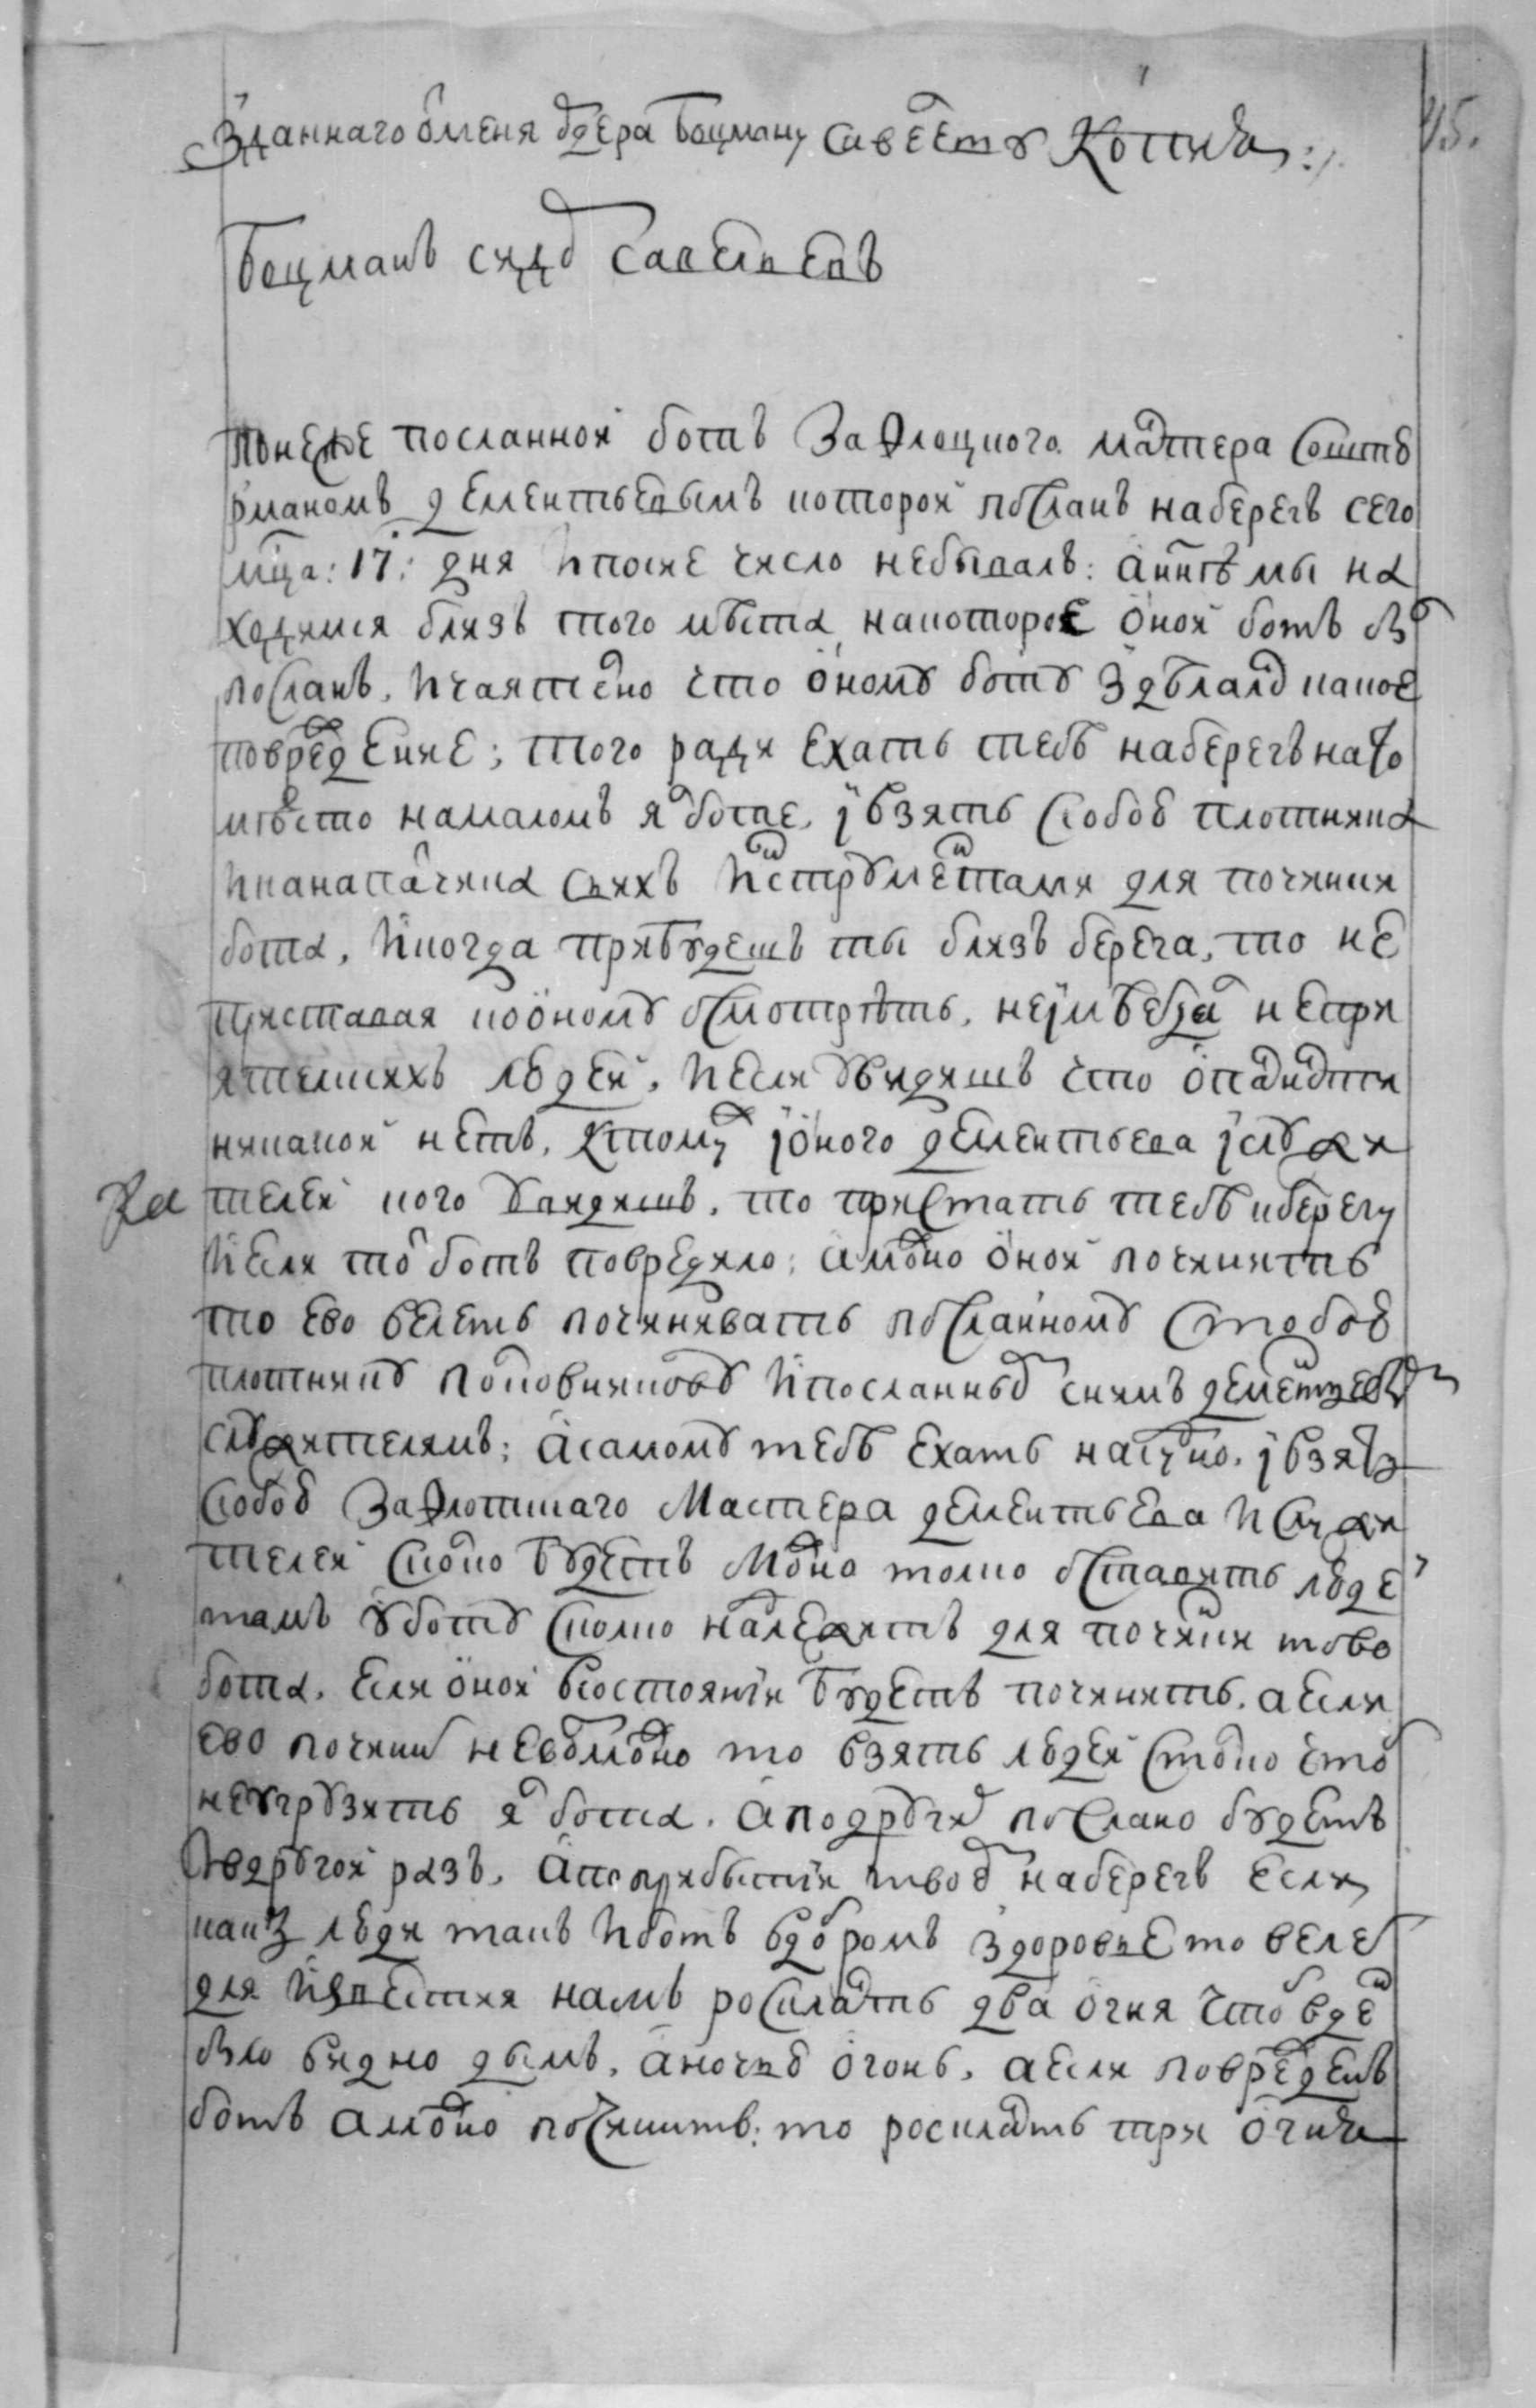 Зданнаго ѿменя ѻрдера боцману савелеву Копия:/.
45.
Боцманъ сидоръ савельевъ
Понеже посланной ботъ За Флоцкого мастера Соштю
рманомъ дементьевымъ которой посланъ наберегъ сего
мца: 17: дня ипосие число небывалъ: аннѣ мы на
ходимся близь того мѣста накоторое оной ботъ был
посланъ, ичаятелно что оному боту Здѣлалос какое
повреждение; того ради ехать тебѣ наберегъ нато
мѣсто намаломъ ял боте, iвзять Ссобою плотника
иканапатчика сних инструментами для починки
бота, икогда прибудешъ ты близь берега, то не
приставая кооному осмотрѣть, неiмѣетца неприя
ятелскихъ людеи, иесли увидишъ что опасности
никакой нетъ, ктомуж iоного дементьева iслужи
телеи кого увидишъ, то пристать тебѣ кберегу
иесли тот ботъ повредило: аможно оной починить
то ево велеть починивать посланному Стобою
плотнику полковникову ипосланным сним дементьевым
служителямъ; асамому тебѣ ехать насудно, iвзять
Ссобою ЗаФлотскаго Мастера дементьева ислужи
телеи Сколко будетъ Можно толко оставить людей
тамъ уботу Сколко надлежитъ для починки тово
бота, если оной Всостоянiи будетъ починить, аесли
ево починить невозможно то взять людеи Столко чтоб
неугрузить ял бота, аподругих послано будетъ
Ивдругой разъ, апоприбытiи твоем наберегъ если
какъ люди такъ иботъ вдобромъ здоровье то велет
для известия намъ роскласть два огня чтоб вден
было видно дымъ, аночью огонь, аесли поврежденъ
ботъ аможно починить: то роскласть три огня